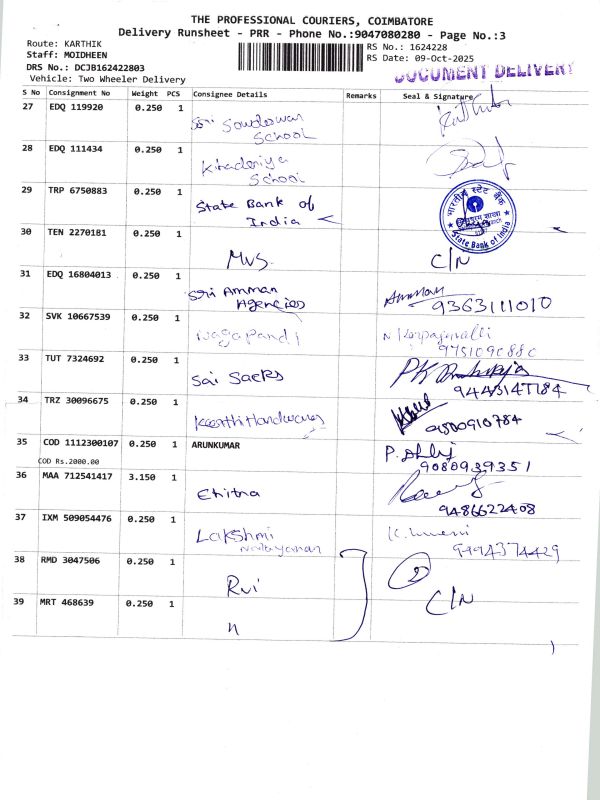 THE PROFESSIONAL COURIERS, COIMBATORE
Delivery Runsheet - PRR - Phone No.:9047080280 - Page No.:3
Route: KARTHIK
Staff: MOIDHEEN
DRS No.: DCJB162422803
Vehicle: Two Wheeler Delivery
RS No.: 1624228
RS Date: 09-Oct-2025
DOCUMENT DELIVERY
S No Consignment No Weight PCS Consignee Details Remarks Seal & Signature
27 EDQ 119920 0.250 1 Sri Sowdeswari
School
28 EDQ 111434 0.250 1 Khaderiya
School
29 TRP 6750883 0.250 1 State Bank of
India
भारतीय स्टेट बैंक
State Bank of India
30 TEN 2270181 0.250 1 MVS. C/N
31 EDQ 16804013 0.250 1 Sri Amman
Agencies
9363111010
32 SVK 10667539 0.250 1 Nagapandi
33 TUT 7324692 0.250 1 Sai Saers
34 TRZ 30096675 0.250 1 Keerthi Hardwares
35 COD 1112300107 0.250 1 ARUNKUMAR
COD Rs.2000.00
9080939351
36 MAA 712541417 3.150 1
9486622408
37 IXM 509054476 0.250 1 Lakshmi
Narayanan
9494374429
38 RMD 3047506 0.250 1 Rvi
39 MRT 468639 0.250 1 "
C/N